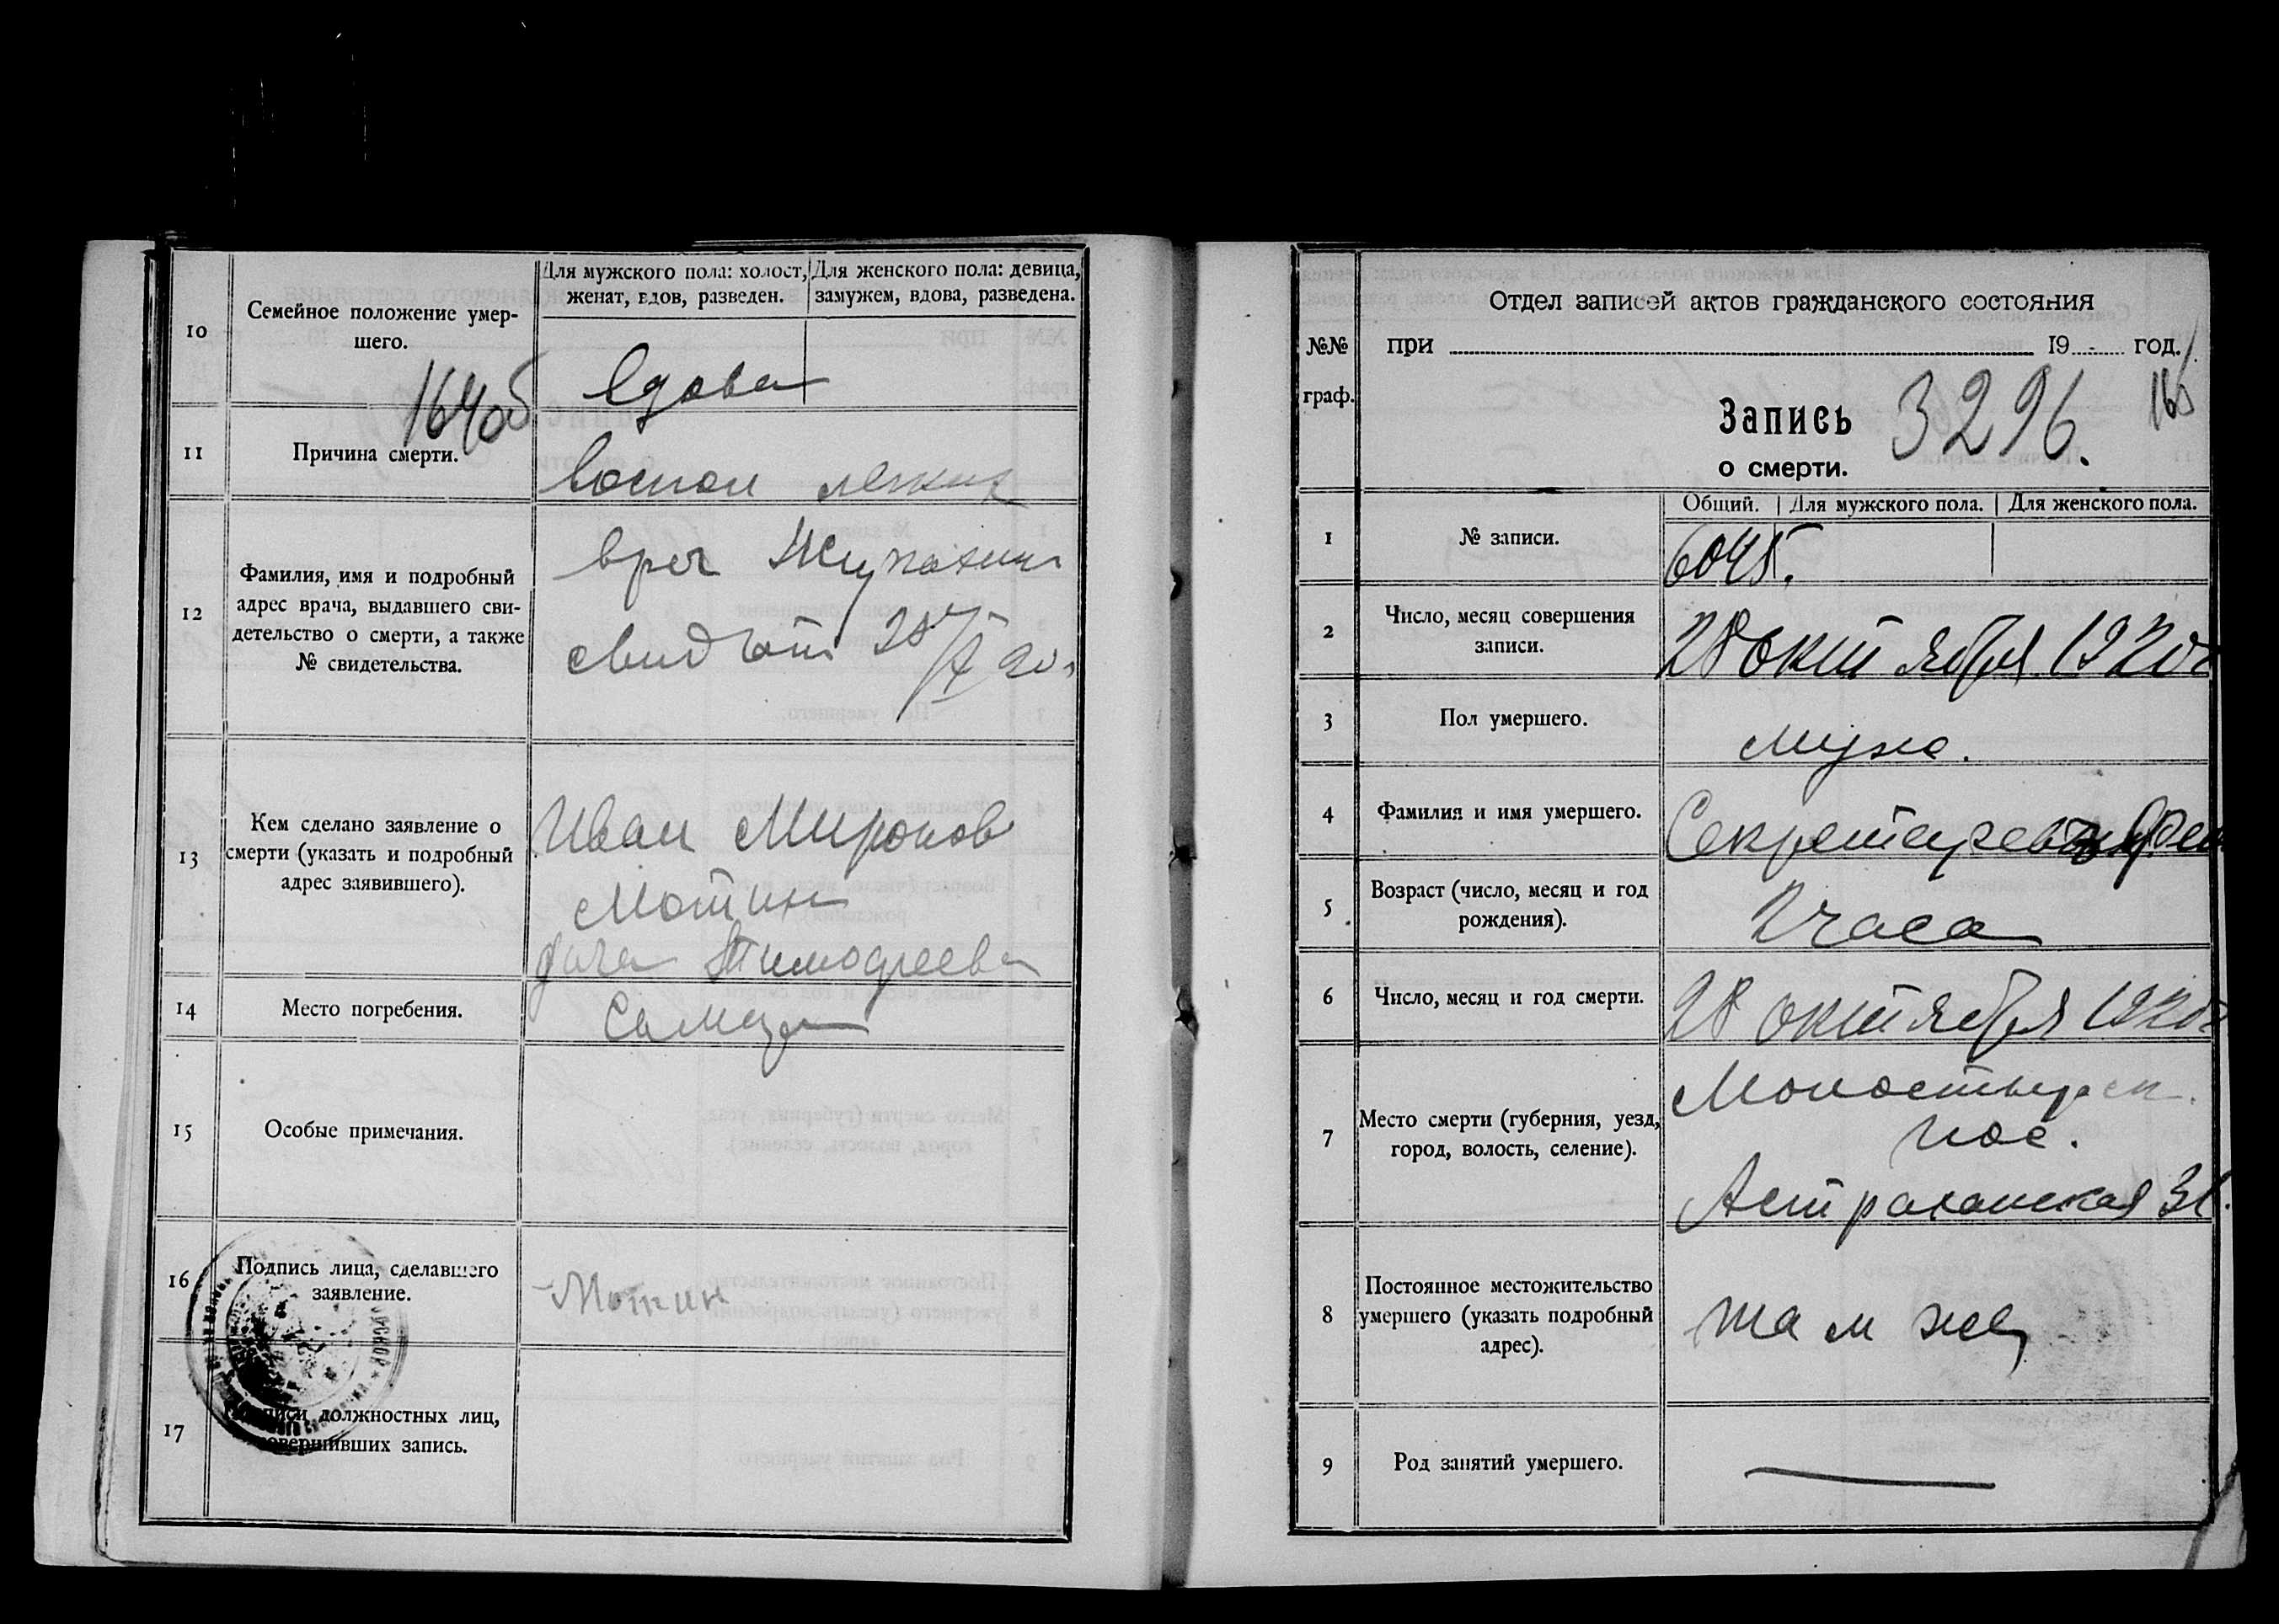 10
Семейное положение умер-
шего.
Для мужского пола: холост,
женат, вдов, разведен.
Для женского пола: девица,
замужем, вдова, разведена.
вдова
164об
11
Причина смерти.
воспал легких
12
Фамилия, имя и подробный
адрес врача, выдавшего сви-
детельство о смерти, а также
№ свидетельства.
врач
свид от 28/X 20г
13
Кем сделано заявление о
смерти (указать и подробный
адрес заявившего).
Иван Миронов
Мотин
дача Тимофеева
14
Место погребения.
15
Особые примечания.
16
Подпись лица, сделавшего
заявление.
Мотин
17
Подписи должностных лиц,
совершивших запись.
№№
граф.
Отдел записей актов гражданского состояния
при 19 год.
165
Запись 3296.
о смерти.
Общий. Для мужского пола. Для женского пола.
1
№ записи.
6045.
2
Число, месяц совершения
записи.
28 октября 1920г
3
Пол умершего.
муж.
4
Фамилия и имя умершего.
5
Возраст (число, месяц и год
рождения).
2 часа
6
Число, месяц и год смерти.
28 октября 1920г
7
Место смерти (губерния, уезд,
город, волость, селение).
Монастырск.
пос.
Астраханская 31.
8
Постоянное местожительство
умершего (указать подробный
адрес).
там же
9
Род занятий умершего.